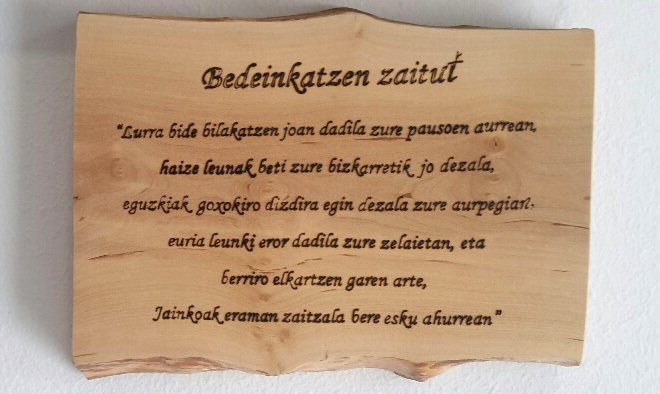 Bedeinkatzen zaitut
“Lurra bide bilakatzen joan dadila zure pausoen aurrean,
haize leunak beti zure bizkarretik jo dezala,
eguzkiak goxokiro dizdira egin dezala zure aurpegian.
euria leunki eror dadila zure zelaietan, eta
berriro elkartzen garen arte,
Jainkoak eraman zaitzala bere esku ahurrean”